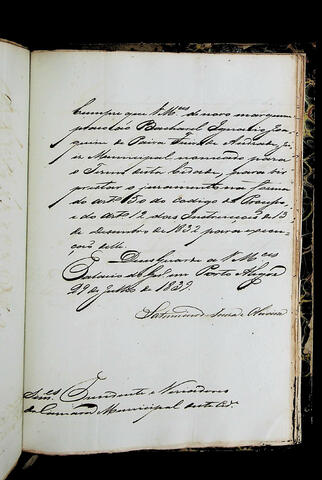 Cumpre que V. M.ces de novo marquem
praso ao Bacharel Ignacio Joa-
quim de Paiva Freire Andrade, Ju-
iz Municipal nomeado para
o Termo desta Cidade, para vir
prestar o juramento na forma
do artº 50 do Codigo do Processo,
e do artº 12 das Instrucções de 13
de dezembro de 1832 para a execu-
ção delle
Deos Guarde a V. M.ces
Palacio do Gov.º em Porto Alegre
29 de Julho de 1837
Saturnino de Souza e Oliveira
Snr.es Presidente e Vereadores
da Camara Municipal desta Cid.e